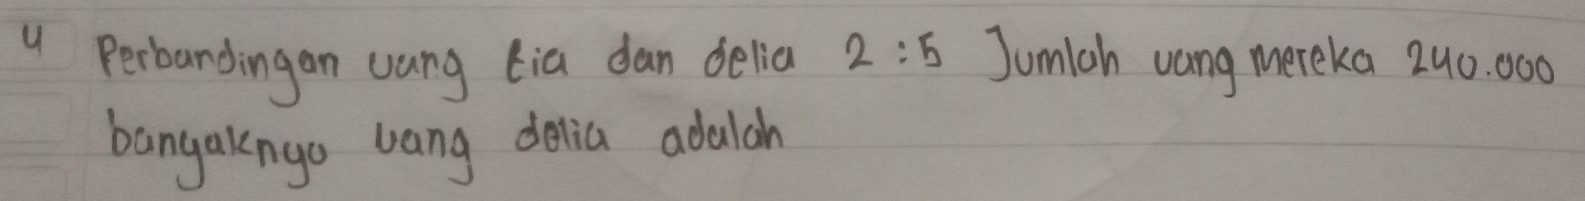 4 Perbandingan uang tia dan delia 2 : 5 Jumlah uang mereka 240.000
banyaknya uang delia adalah